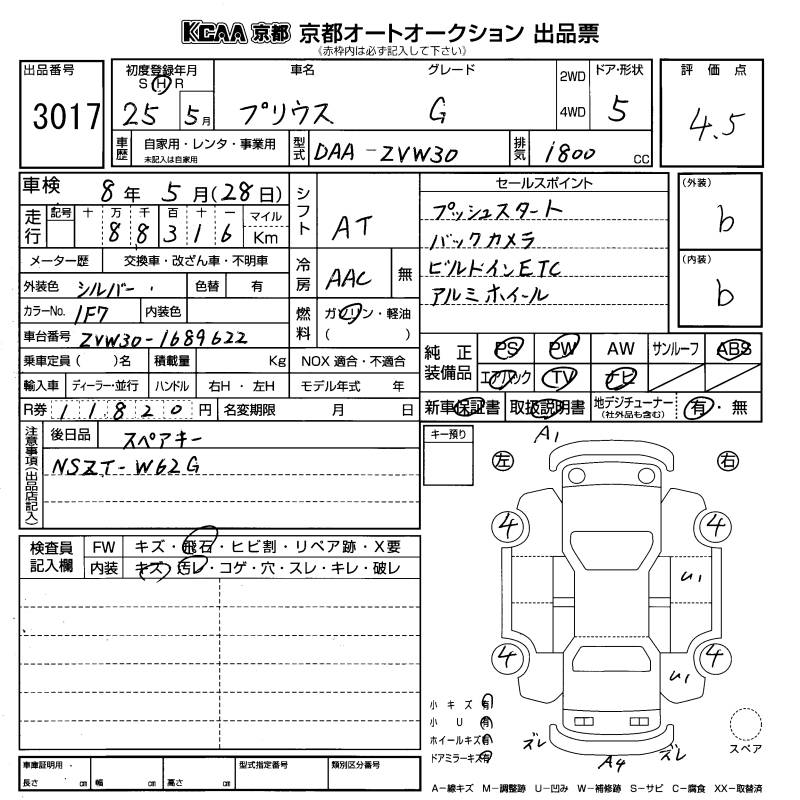 KCAA 京都 京都オートオークション 出品票
《赤枠内は必ず記入して下さい》
出品番号
3017
初度登録年月
S H R
25 5 月
車名
プリウス
グレード
G
2WD
4WD
ドア・形状
5
評価点
4.5
車歴
自家用・レンタ・事業用
未記入は自家用
型式
DAA-ZVW30
排気
1800 CC
車検 8 年 5 月 (28 日)
走行
記号 十 万 千 百 十 一
8 8 3 1 6
マイル
Km
シフト
AT
セールスポイント
プッシュスタート
バックカメラ
ビルドインETC
アルミホイール
(外装)
b
(内装)
b
メーター歴 交換車・改ざん車・不明車
外装色 シルバー 色替 有
冷房
AAC 無
カラーNo. 1F7 内装色
燃料
ガソリン・軽油
( )
車台番号 ZVW30-1689622
乗車定員( )名 積載量 Kg NOX適合・不適合
輸入車 ディーラー・並行 ハンドル 右H・左H モデル年式 年
R券 11820 円 名変期限 月 日
純正装備品
PS PW AW サンルーフ ABS
エアバック TV ナビ
新車保証書 取扱説明書 地デジチューナー
(社外品も含む)
有・無
注意事項(出品店記入)
後日品 スペアキー
NSZT-W62G
キー預り
A1
左 右
4 4
U1
4 4
U1
検査員記入欄
FW キズ・飛石・ヒビ割・リペア跡・X要
内装 キズ・汚レ・コゲ・穴・スレ・キレ・破レ
小キズ 有
小U 有
ホイールキズ 有
ドアミラーキズ 有
ズレ A4 ズレ
スペア
車庫証明用
長さ cm 幅 cm 高さ cm
型式指定番号
類別区分番号
A-線キズ M-調整跡 U-凹み W-補修跡 S-サビ C-腐食 XX-取替済